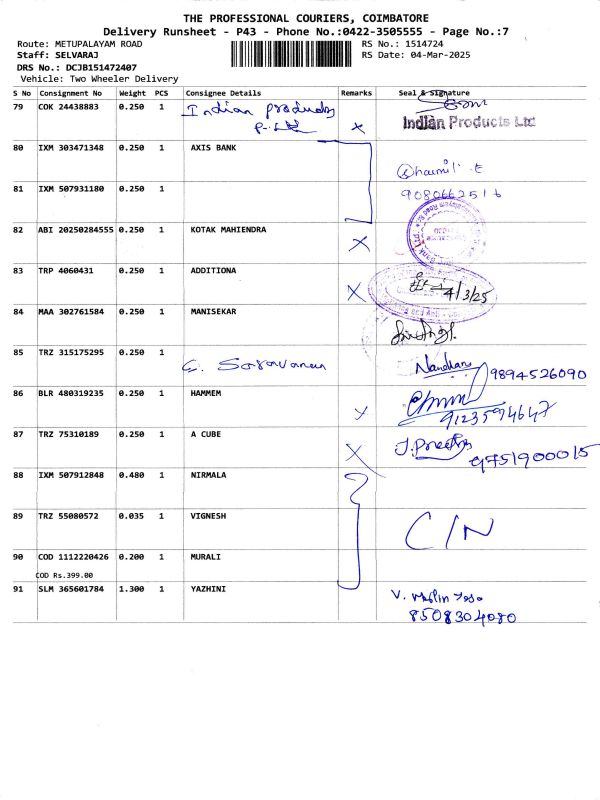 THE PROFESSIONAL COURIERS, COIMBATORE
Delivery Runsheet - P43 - Phone No.:0422-3505555 - Page No.:7
Route: METUPALAYAM ROAD RS No.: 1514724
Staff: SELVARAJ RS Date: 04-Mar-2025
DRS No.: DCJB151472407
Vehicle: Two Wheeler Delivery
S No Consignment No Weight PCS Consignee Details Remarks Seal & Signature
79 COK 24438883 0.250 1 Indian products
P. Ltd X Indian Products Ltd
80 IXM 303471348 0.250 1 AXIS BANK
81 IXM 507931180 0.250 1 9080662516
82 ABI 20250284555 0.250 1 KOTAK MAHIENDRA X
83 TRP 4060431 0.250 1 ADDITIONA X 4/3/25
84 MAA 302761584 0.250 1 MANISEKAR
85 TRZ 315175295 0.250 1 G. Saravanan Nandhan 9894526090
86 BLR 480319235 0.250 1 HAMMEM X 9123594647
87 TRZ 75310189 0.250 1 A CUBE X J. Preethi 9751900015
88 IXM 507912848 0.480 1 NIRMALA
89 TRZ 55080572 0.035 1 VIGNESH C/N
90 COD 1112220426 0.200 1 MURALI
COD Rs.399.00
91 SLM 365601784 1.300 1 YAZHINI V.
8508304080